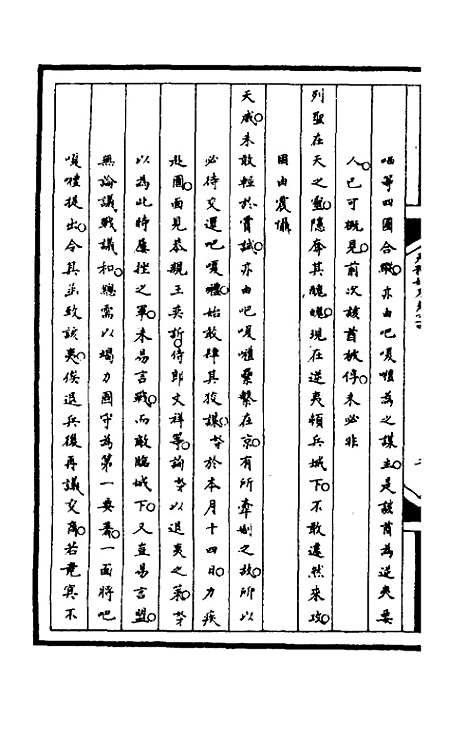 喵等四國合縱亦由吧嗄禮為之謀主是該酋為逆夷要
人已可概見前次該酋被俘未必非
列聖在天之靈隱奪其魄現在逆夷頓兵城下不敢遽然來攻
固由震懾
天威未敢輕於嘗試亦由吧嗄禮纍繫在京有所牽制之故所以
必待交還吧嗄禮始敢肆其狡謀 於本月十四日力疾
赴園面見恭親王奕訢侍郎文祥等論 以退夷之策
以為此時屢挫之軍未易言戰而敵臨城下又豈易言盟
無論議戰議和總需以竭力固守為第一要著一面將吧
嗄禮提出令其函致該夷俟退兵後再議交商若竟冥不